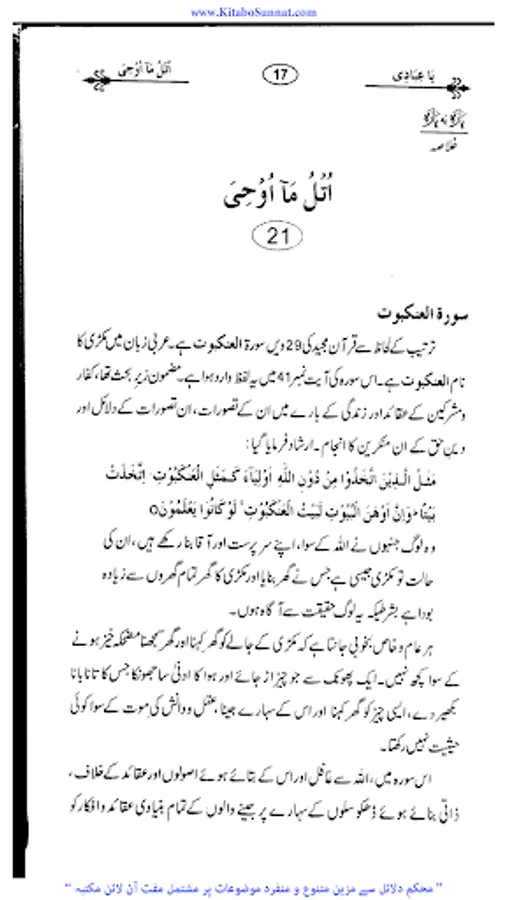 www.KitaboSunnat.com
یا عبادی 17 اُتْلُ مَآ اُوْحِیَ
خلاصہ
اُتْلُ مَآ اُوْحِیَ
21
سورة العنكبوت
ترتیب کے لحاظ سے قرآن مجید کی 29 ویں سورة العنكبوت ہے۔ عربی زبان میں مکڑی کا
نام العنكبوت ہے۔ اس سورہ کی آیت نمبر 41 میں یہ لفظ وارد ہوا ہے۔ مضمون زیر بحث تھا، کفار
ومشرکین کے عقائد اور زندگی کے بارے میں ان کے تصورات، ان تصورات کے دلائل اور
دین حق کے ان منکرین کا انجام۔ ارشاد فرمایا گیا:
مَثَلُ الَّذِيْنَ اتَّخَذُوْا مِنْ دُوْنِ اللّٰهِ اَوْلِيَآءَ كَمَثَلِ الْعَنْكَبُوْتِ اِتَّخَذَتْ
بَيْتًا وَاِنَّ اَوْهَنَ الْبُيُوْتِ لَبَيْتُ الْعَنْكَبُوْتِ لَوْ كَانُوْا يَعْلَمُوْنَ
وہ لوگ جنہوں نے اللہ کے سوا، اپنے سرپرست اور آقا بنا رکھے ہیں، ان کی
حالت تو مکڑی جیسی ہے جس نے گھر بنایا اور مکڑی کا گھر تمام گھروں سے زیادہ
بودا ہے بشرطیکہ یہ لوگ حقیقت سے آگاہ ہوں۔
ہر عام و خاص بخوبی جانتا ہے کہ مکڑی کے جالے کو گھر کہنا اور گھر سمجھنا مضحکہ خیز ہونے
کے سوا کچھ نہیں۔ ایک پھونک سے جو چیز اڑ جائے اور ہوا کا ادنیٰ سا جھونکا جس کا تانا بانا
بکھیر دے، ایسی چیز کو گھر کہنا اور اس کے سہارے جینا، عقل و دانش کی موت کے سوا کوئی
حیثیت نہیں رکھتا۔
اس سورہ میں، اللہ سے غافل اور اس کے بتائے ہوئے اصولوں اور عقائد کے خلاف،
ذاتی بنائے ہوئے ڈھکوسلوں کے سہارے پر جینے والوں کے تمام بنیادی عقائد و افکار کو
" محکم دلائل سے مزین متنوع و منفرد موضوعات پر مشتمل مفت آن لائن مکتبہ "